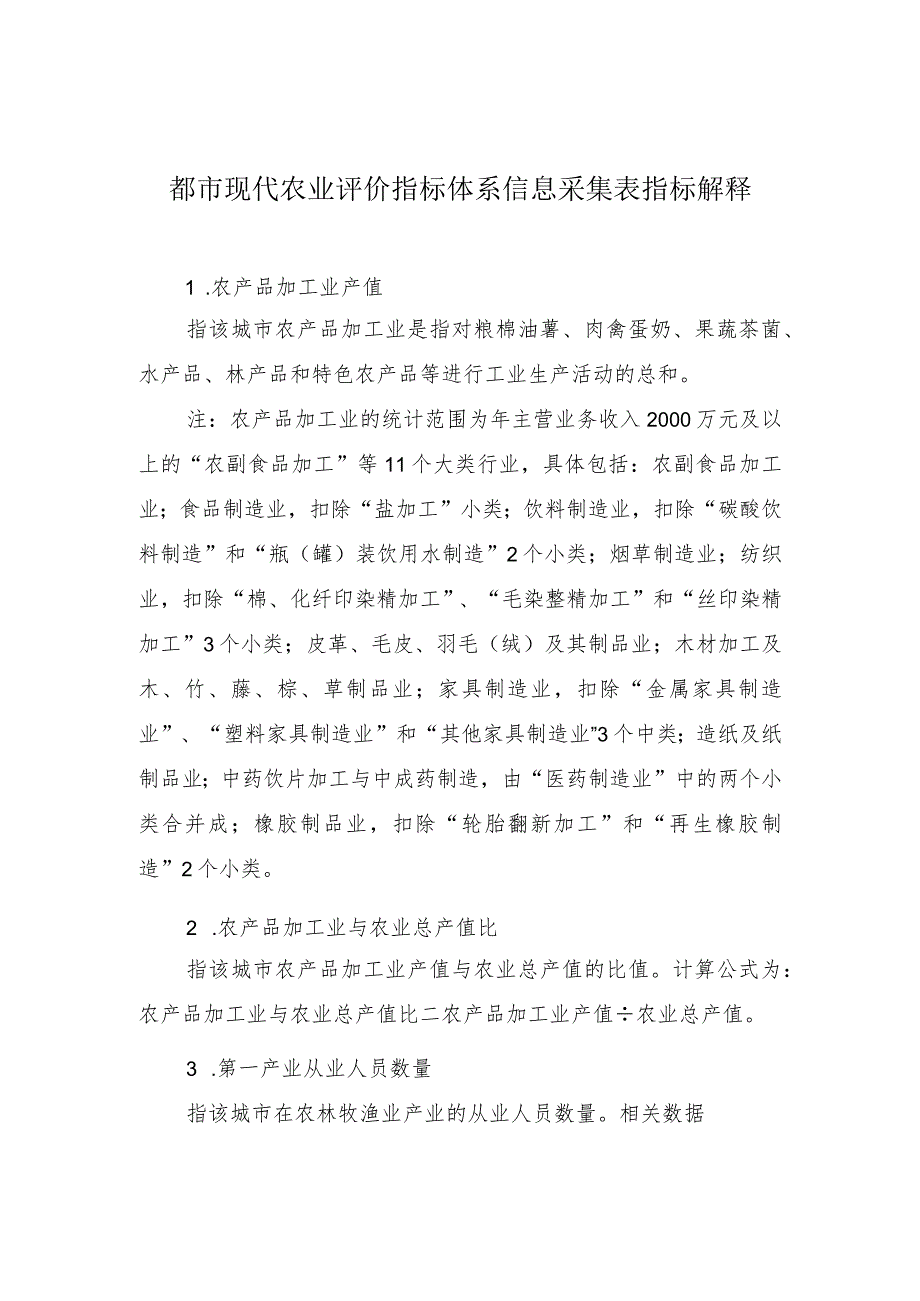 都市现代农业评价指标体系信息采集表指标解释
1 .农产品加工业产值
指该城市农产品加工业是指对粮棉油薯、肉禽蛋奶、果蔬茶菌、
水产品、林产品和特色农产品等进行工业生产活动的总和。
注：农产品加工业的统计范围为年主营业务收入 2000 万元及以
上的“农副食品加工”等 11 个大类行业，具体包括：农副食品加工
业；食品制造业，扣除“盐加工”小类；饮料制造业，扣除“碳酸饮
料制造”和“瓶（罐）装饮用水制造”2 个小类；烟草制造业；纺织
业，扣除“棉、化纤印染精加工”、“毛染整精加工”和“丝印染精
加工”3 个小类；皮革、毛皮、羽毛（绒）及其制品业；木材加工及
木、竹、藤、棕、草制品业；家具制造业，扣除“金属家具制造
业”、“塑料家具制造业”和“其他家具制造业”3 个中类；造纸及纸
制品业；中药饮片加工与中成药制造，由“医药制造业”中的两个小
类合并成；橡胶制品业，扣除“轮胎翻新加工”和“再生橡胶制
造”2 个小类。
2 .农产品加工业与农业总产值比
指该城市农产品加工业产值与农业总产值的比值。计算公式为：
农产品加工业与农业总产值比二农产品加工业产值÷农业总产值。
3 .第一产业从业人员数量
指该城市在农林牧渔业产业的从业人员数量。相关数据